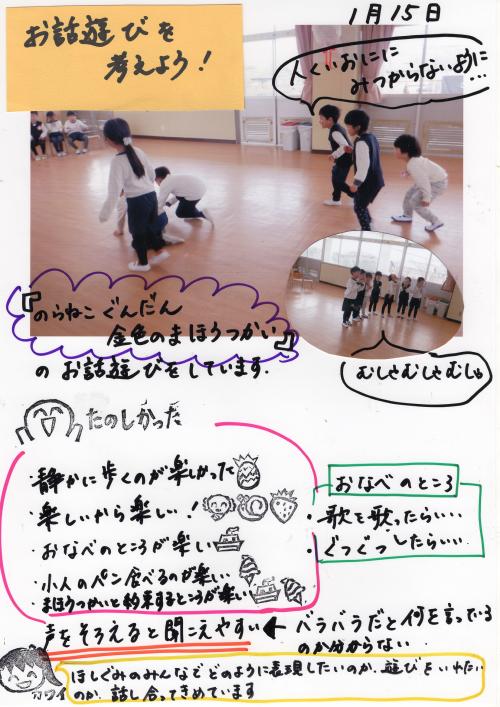 お話遊びを
考えよう！
1月15日
人くいおにに
みつからないように
…
『のらねこ ぐんだん
金色のまほうつかい』
の お話遊びをしています.
むしゃむしゃむしゃ
たのしかった
・静かに歩くのが楽しかった
・楽しいから楽しい！
・おなべのところが楽しい
・小人のパン食べるのが楽しい
・まほうつかいと約束するところが楽しい
おなべのところ
・歌を歌ったらい…
・ぐつぐつしたらい…
声をそろえると聞こえやすい ← バラバラだと何を言っている
のか分からない
カワイ
ほしぐみのみんなでどのように表現したいのか. 遊びをしたい
のか 話し合ってきめています